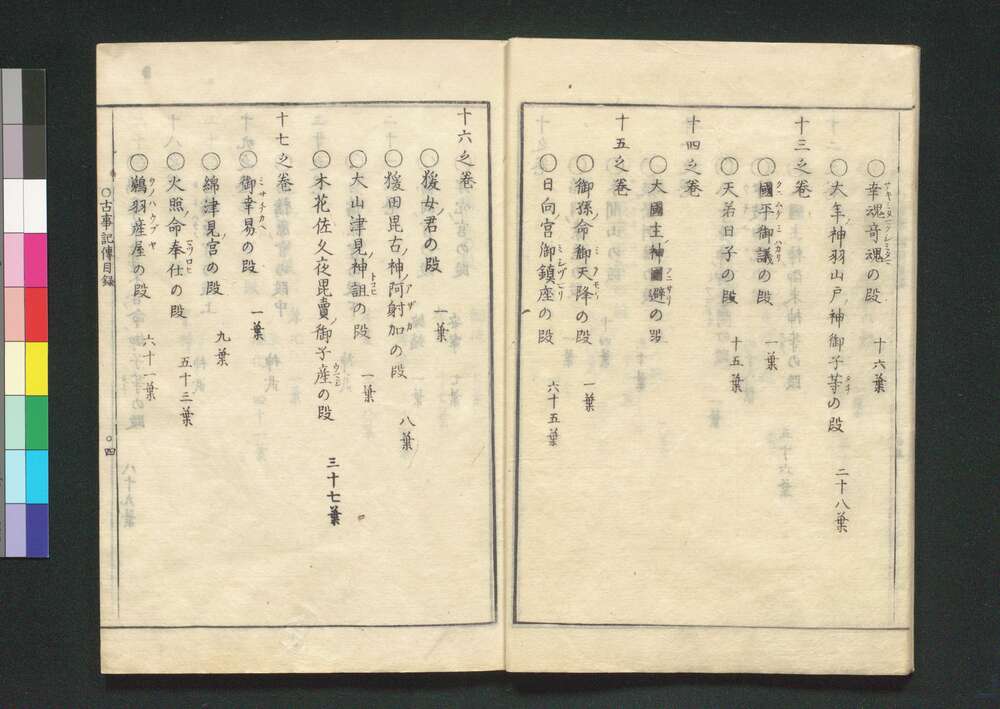 ○幸魂奇魂の段 十六葉
○大年ノ神羽山戸ノ神御子等の段 二十八葉
十三之巻
○國平御議の段 一葉
○天若日子の段 十五葉
十四之巻
○大國主ノ神國避の段
十五之巻
○御孫ノ命御天降の段 一葉
○日向宮御鎮座の段 六十五葉
十六之巻
○猨女ノ君の段 一葉
○猨田毘古ノ神阿射加の段 八葉
○大山津見ノ神詛の段 一葉
○木花佐久夜毘賣ノ御子産の段 三十七葉
十七之巻
○御幸易の段 一葉
○綿津見ノ宮の段 九葉
○火照ノ命奉仕の段 五十三葉
○鵜羽産屋の段 六十一葉
○古事記傳目録 ○四